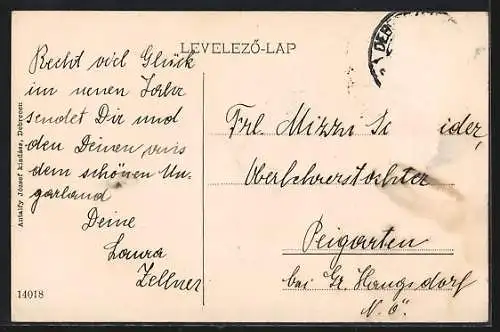 LEVELEZŐ-LAP
Recht viel Glück
im neuen Jahr
sendet Dir und
den Deinen aus
dem schönen Un-
garland
Deine
Laura
Zellner
Frl. Mizzi Sc ider,
Oberlehrerstochter
Peigarten
bei Gr. Haugsdorf
N. Ö.
Antalfy József kiadása, Debrecen
14018
DEB